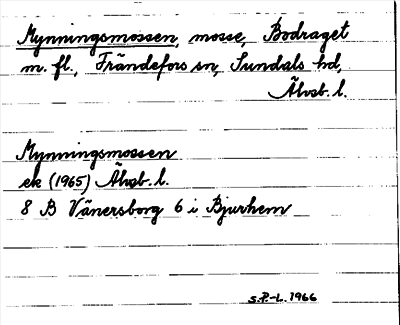 Mynningsmossen, mosse, Bodraget
m. fl., Frändefors sn, Sundals hd,
Älvsb. l.
Mynningsmossen
ek (1965) Älvsb. l.
8 B Vänersborg 6 i Bjurhem
S.P.-L. 1966